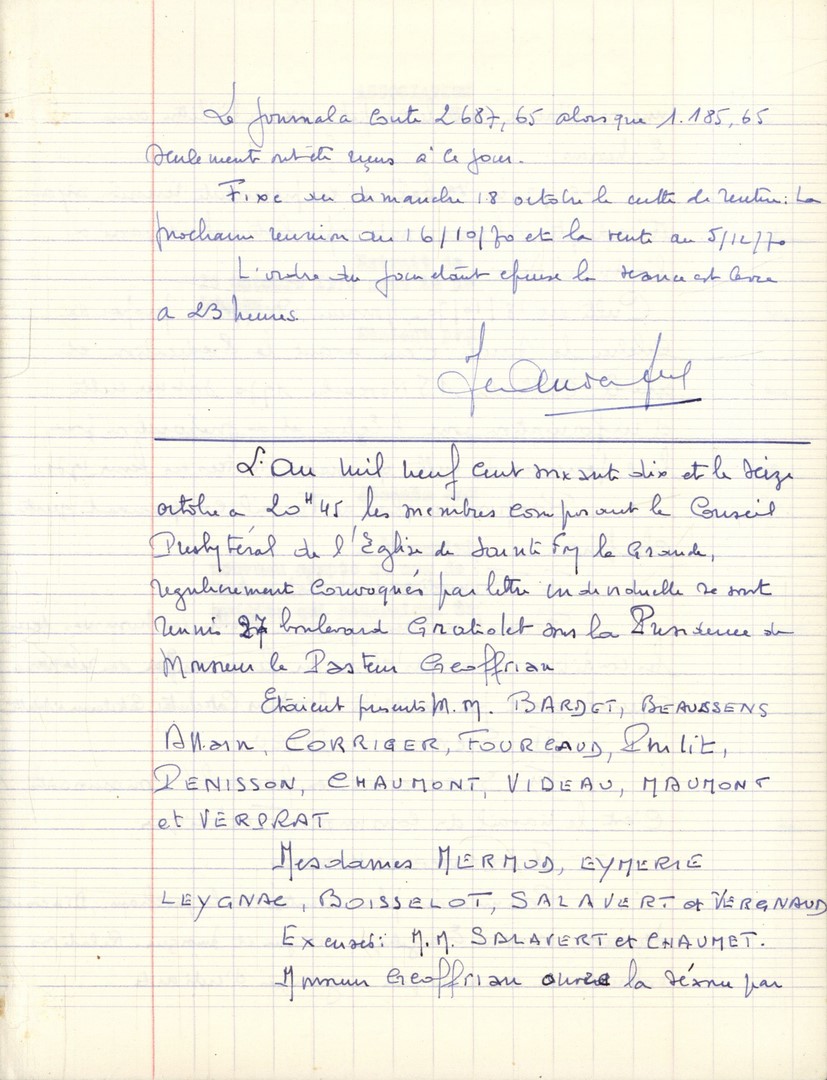 Le journal a couté 2687,65 alors que 1.185,65
seulement ont été reçus à ce jour.
Fixe au dimanche 18 octobre le culte de rentrée: La
prochaine reunion au 16/10/70 et la vente au 5/12/70
L'ordre du jour étant epuisé la seance est levée
a 23 heures.
L'An mil neuf cent soixante dix et le seize
octobre a 20H45 les membres composant le Conseil
Presbytéral de l'Église de Sainte Foy la Grande,
regulierement convoqués par lettre individuelle se sont
reunis 27 boulevard Gratiolet sous la Presidence de
Monsieur le Pasteur Geoffrian
Etaient presents M.M. BARDET, BEAUSSENS
Allain, CORRIGER, FOURCAUD,
DENISSON, CHAUMONT, VIDEAU, MAUMONT
et VERDRAT
Mesdames MERMOD, EYMERIE
LEYGNAC, BOISSELOT, SALAVERT et VERGNAUD
Excusés: M.M. SALAVERT et CHAUMET.
Monsieur Geoffrian ouvre la séance par